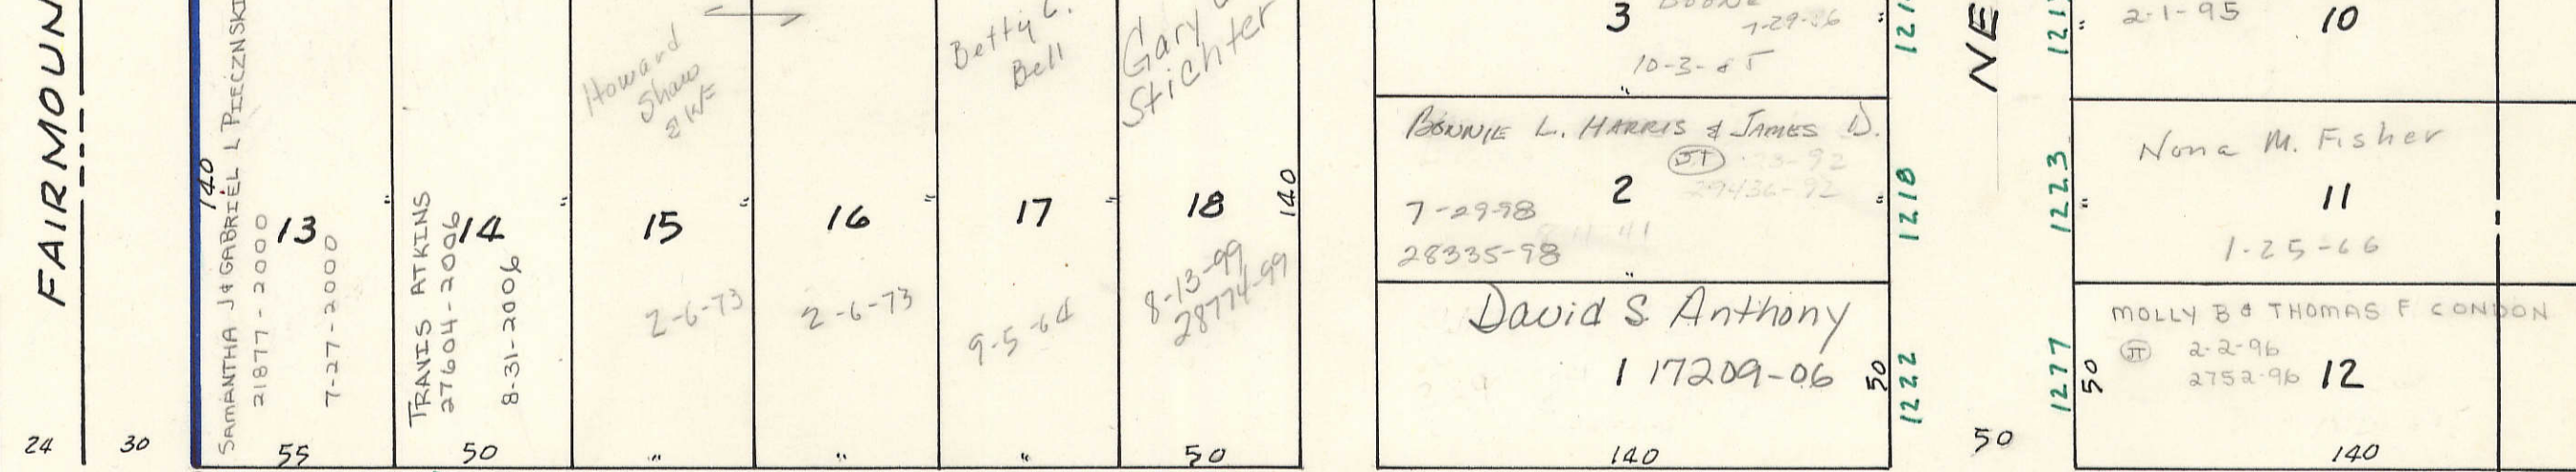 FAIRMOUN
24
30
140
SAMANTHA J & GABRIEL L PIECZNSKI
21877-2000
7-27-2000
13
"
55
TRAVIS ATKINS
27604-2006
8-31-2006
14
"
50
Howard
Shaw
& WF
15
"
2-6-73
"
16
"
2-6-73
"
Betty C.
Bell
17
"
9-5-64
"
Gary
Stichter
18
140
8-13-99
28774-99
50
3
7-29-86
10-3-85
"
"
121
BONNIE L. HARRIS & JAMES D.
JT
29436-92
2
7-29-98
28335-98
"
"
1218
David S. Anthony
1 17209-06
50
1222
140
NE
50
121
"
2-1-95
10
Nona M. Fisher
1223
"
11
1-25-66
MOLLY B & THOMAS F CONDON
JT 2-2-96
2752-96
12
1277
50
140